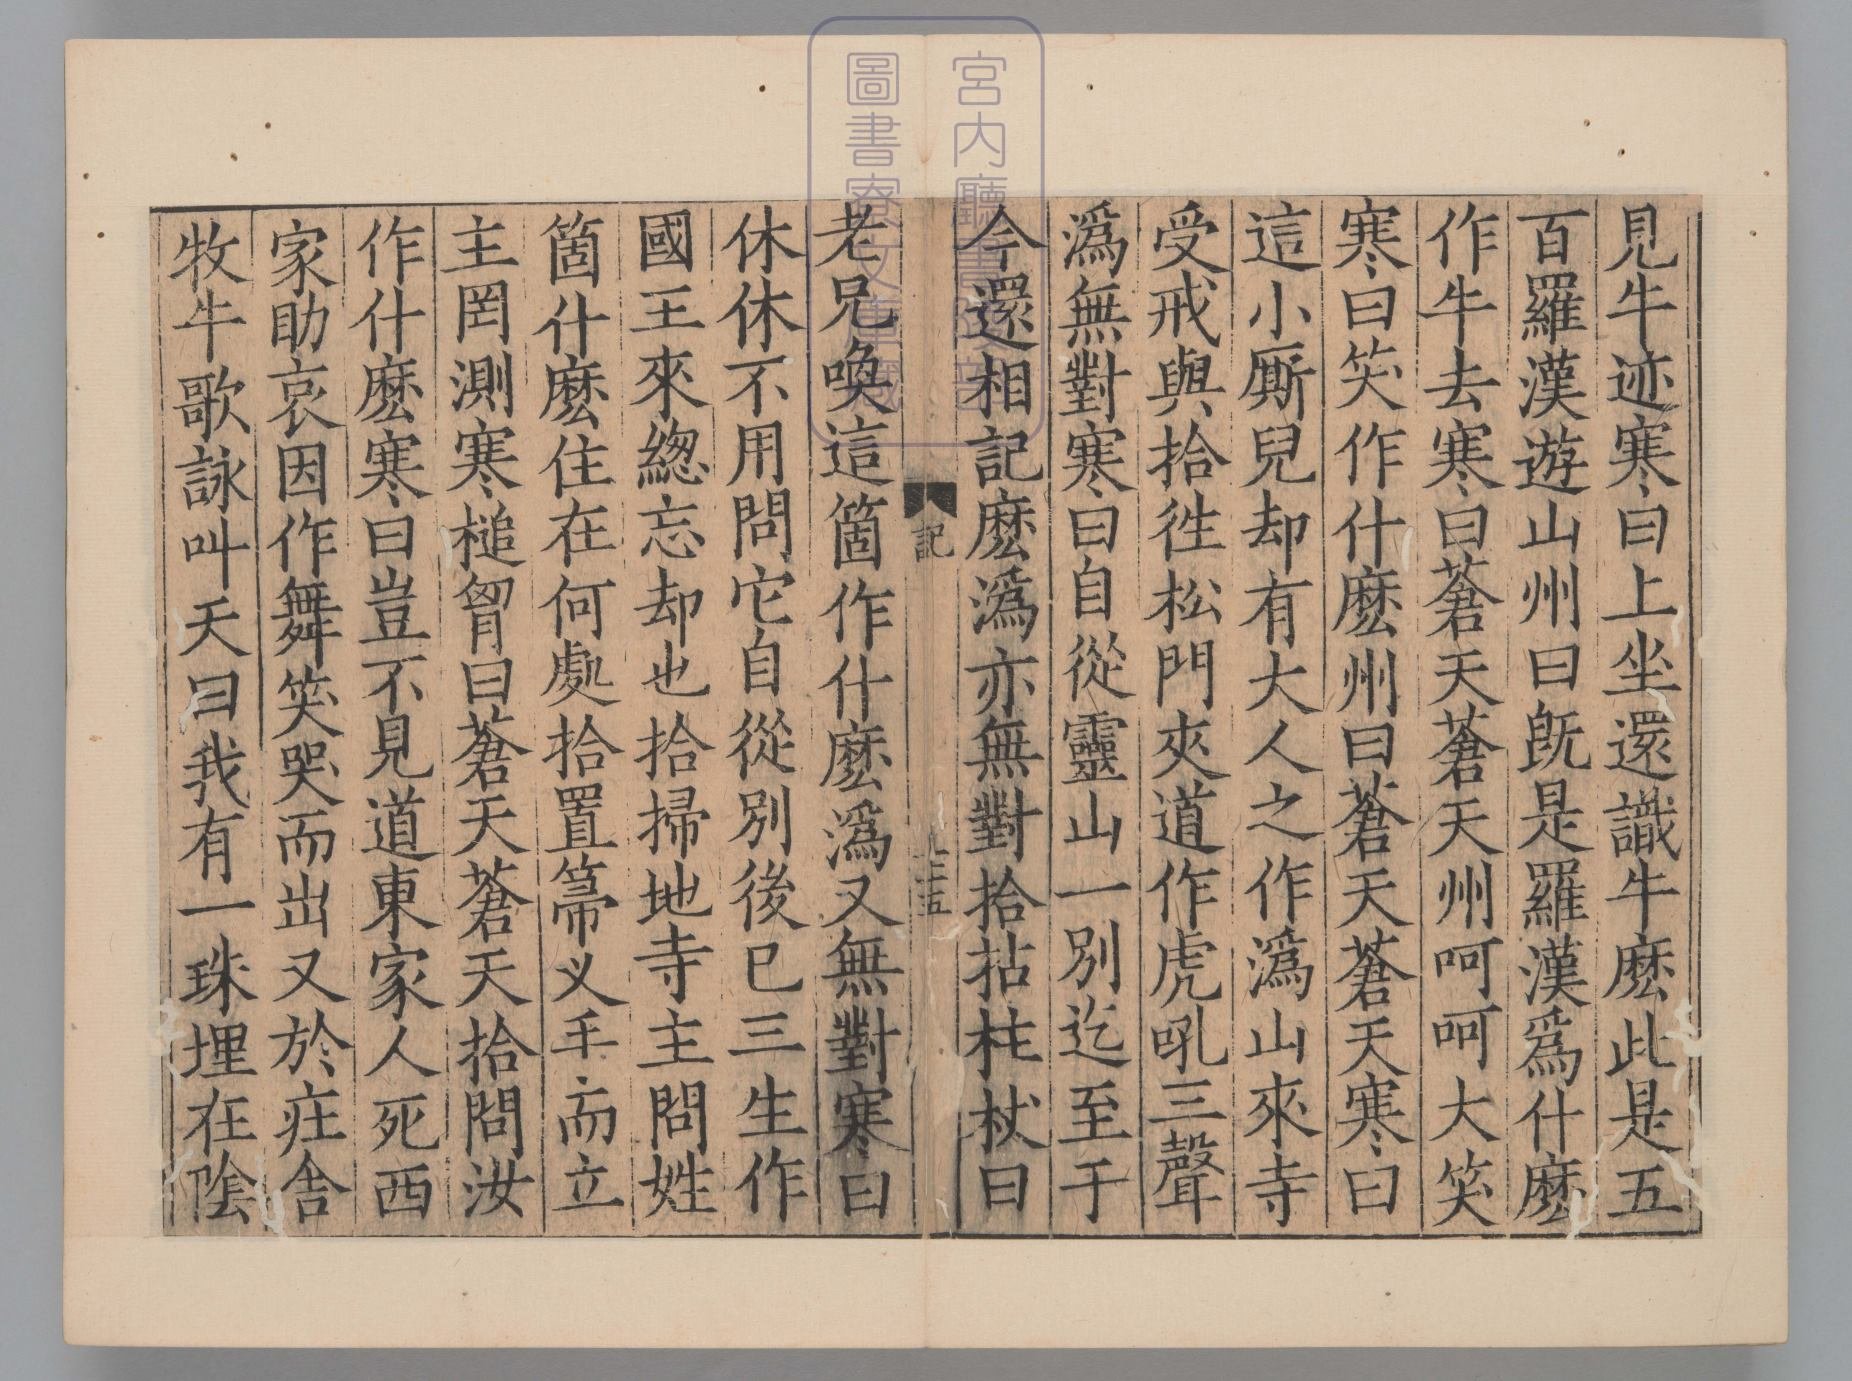 見牛迹寒曰上坐還識牛麽此是五
百羅漢遊山州曰旣是羅漢爲什麽
作牛去寒曰蒼天蒼天州呵呵大笑
寒曰笑作什麽州曰蒼天蒼天寒曰
這小厮兒却有大人之作潙山來寺
受戒與拾徃松門夾道作虎吼三聲
潙無對寒曰自從靈山一別迄至于
今還相記麽潙亦無對拾拈柱杖曰
記
老兄喚這箇作什麽潙又無對寒曰
休休不用問它自從別後已三生作
國王來緫忘却也拾掃地寺主問姓
箇什麽住在何處拾置箒义手而立
主罔測寒槌胷曰蒼天蒼天拾問汝
作什麽寒曰豈不見道東家人死西
家助哀因作舞笑哭而出又於庄舍
牧牛歌詠叫天曰我有一珠埋在陰
宮内廳書陵部
圖書寮文庫藏